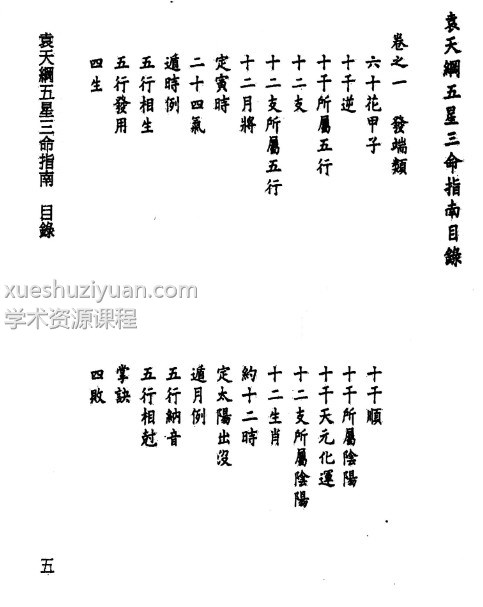 袁天綱五星三命指南目錄
卷之一 發端類
六十花甲子 十干順
十干逆 十干所屬陰陽
十干所屬五行 十干天元化運
十二支 十二支所屬陰陽
十二支所屬五行 十二生肖
十二月將 約十二時
定寅時 定太陽出沒
二十四氣 遁月例
遁時例 五行納音
五行相生 五行相尅
五行發用 掌訣
四生 四敗
袁天綱五星三命指南 目錄 五
xueshuziyuan.com
学术资源课程